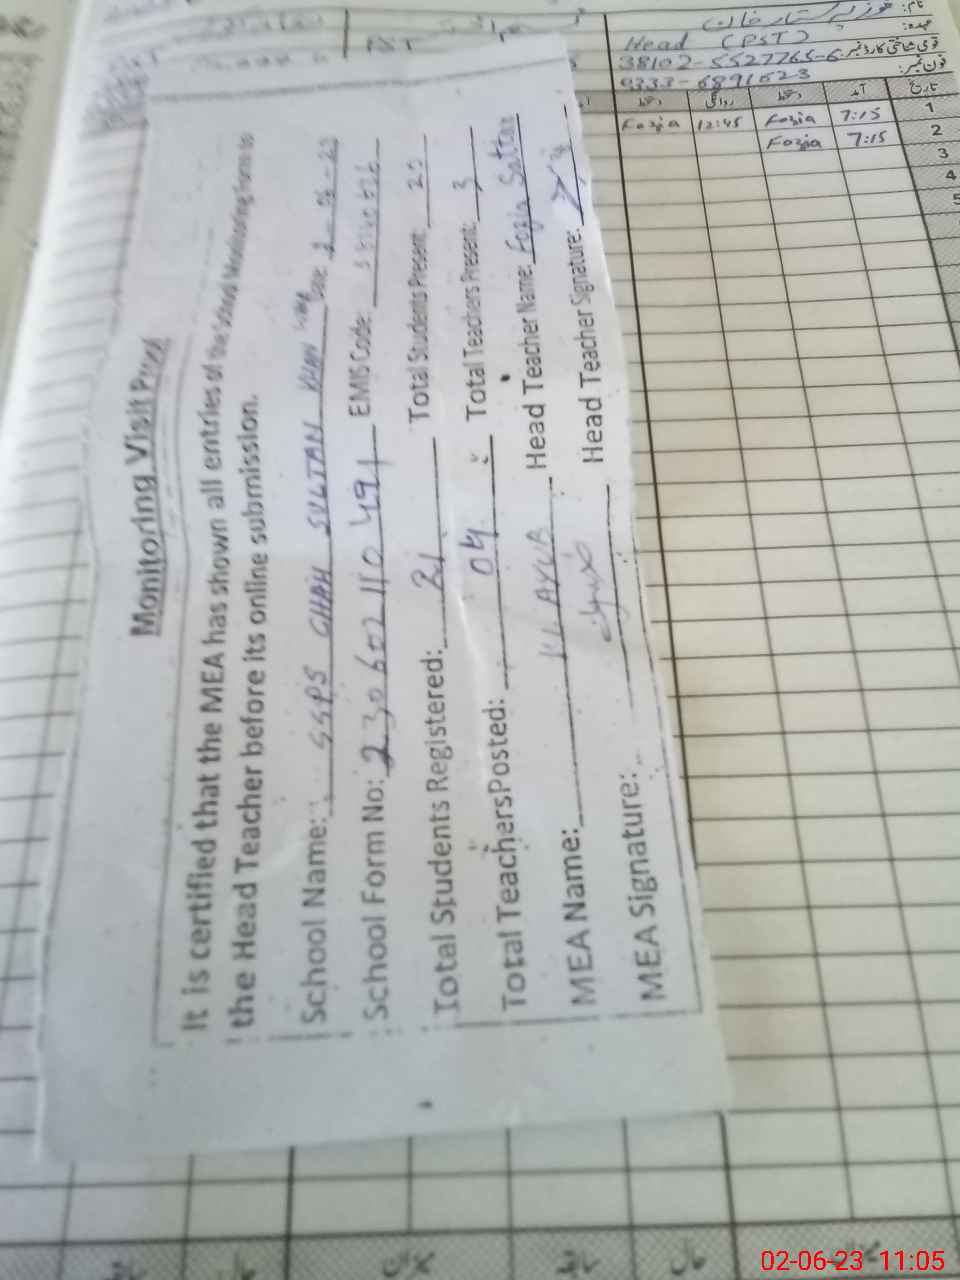 Monitoring Visit Proof
It is certified that the MEA has shown all entries of the School Monitoring Form to
the Head Teacher before its online submission.
School Name: GGPS CHAH SULTAN KHAN Date: 2-06-23
School Form No: 230602110491 EMIS Code:
Total Students Registered: 21 Total Students Present: 20
Total Teachers Posted: 04 Total Teachers Present: 3
MEA Name: M. AYUB Head Teacher Name: Fozia Sattar
MEA Signature: Head Teacher Signature:
نام: فوزیہ ستار خان
عہدہ: Head (PST)
قومی شناختی کارڈ نمبر: 38102-5527765-6
فون نمبر: 0333-6891623
تاریخ آمد دستخط روانگی دستخط
1 7:15 Fozia 12:45 Fozia
2 7:15 Fozia
3
4
5
میزان حال سابقہ میزان
02-06-23 11:05